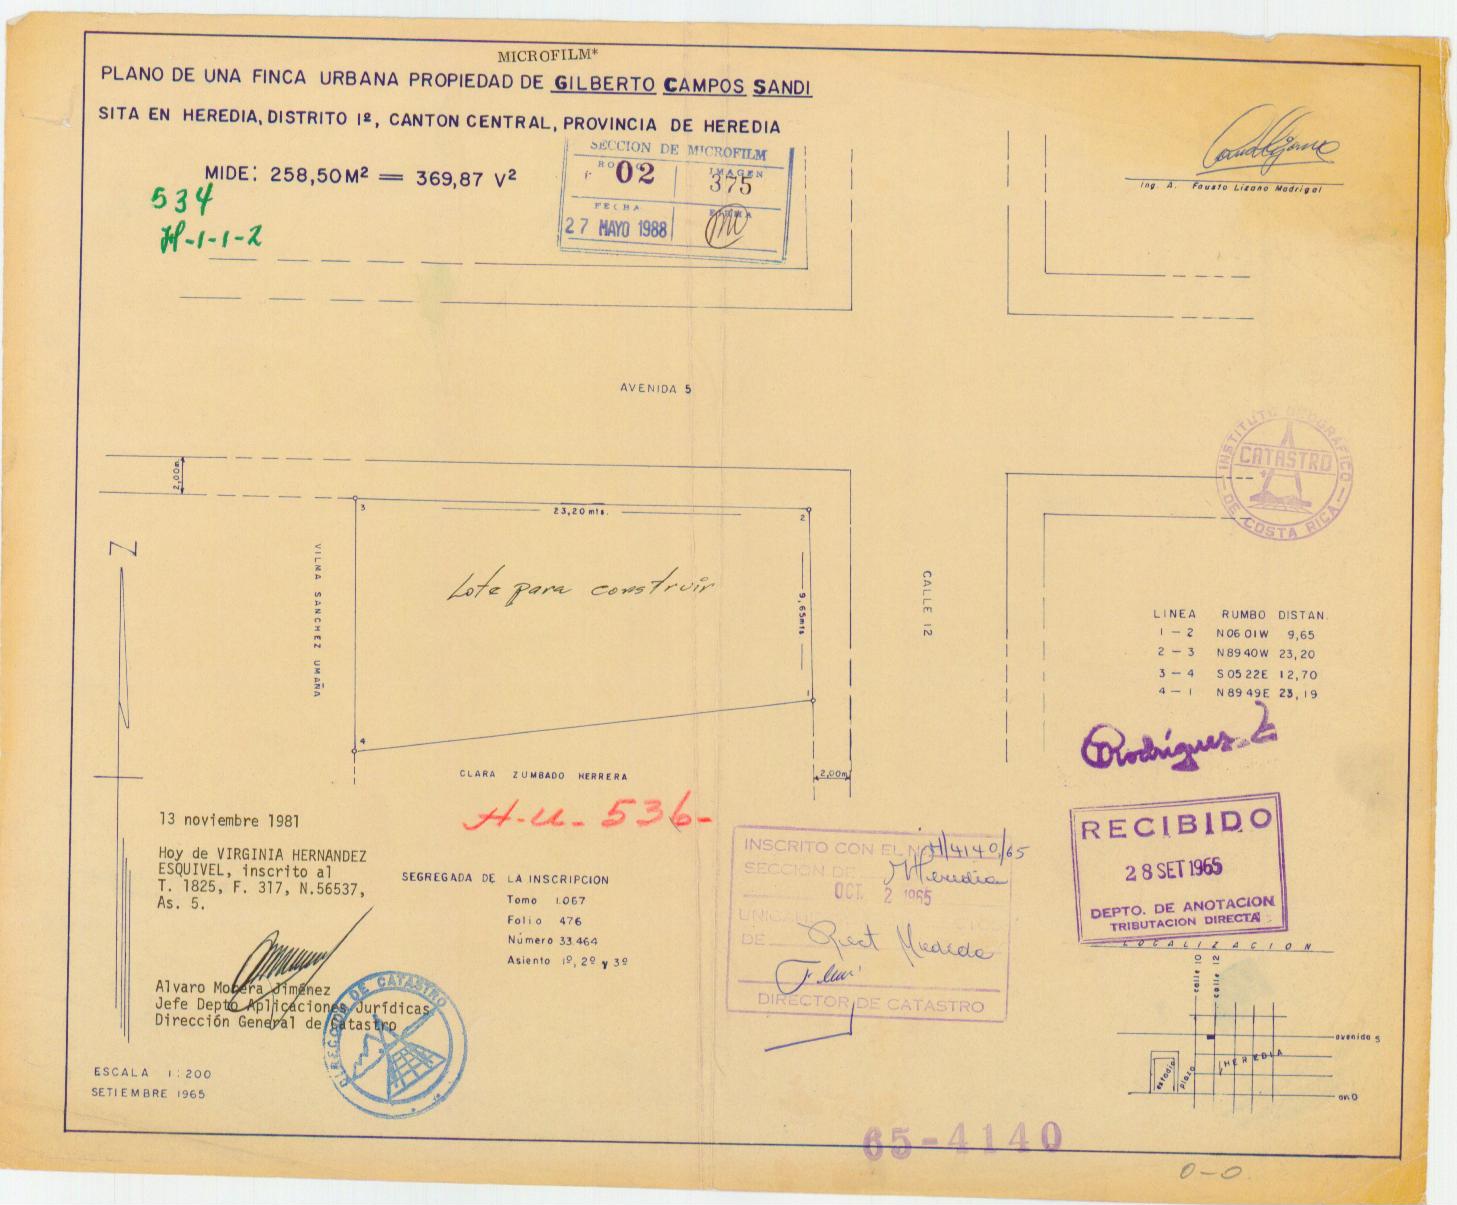 MICROFILM*
PLANO DE UNA FINCA URBANA PROPIEDAD DE GILBERTO CAMPOS SANDI
SITA EN HEREDIA, DISTRITO 1º, CANTON CENTRAL, PROVINCIA DE HEREDIA
MIDE: 258,50 M² = 369,87 V²
534
H-1-1-2
SECCION DE MICROFILM
02
IMAGEN
375
FECHA
FIRMA
27 MAYO 1988
Ing. A. Fausto Lizano Madrigal
AVENIDA 5
INSTITUTO GEOGRAFICO
CATASTRO
DE COSTA RICA
2,00m
3
23,20 mts.
2
N
VILMA SANCHEZ UMAÑA
Lote para construir
9,65mts
CALLE 12
1
4
LINEA RUMBO DISTAN.
1 - 2 N 06 01 W 9,65
2 - 3 N 89 40 W 23,20
3 - 4 S 05 22 E 12,70
4 - 1 N 89 49 E 23,19
Rodríguez
CLARA ZUMBADO HERRERA
2,00m
H-U-536-
13 noviembre 1981
Hoy de VIRGINIA HERNANDEZ
ESQUIVEL, inscrito al
T. 1825, F. 317, N.56537,
As. 5.
SEGREGADA DE LA INSCRIPCION
Tomo 1.067
Folio 476
Número 33.464
Asiento 1º, 2º y 3º
INSCRITO CON EL Nº H/4140/65
SECCION DE Heredia
OCT. 2 1965
DE Rect Medida
DIRECTOR DE CATASTRO
RECIBIDO
28 SET 1965
DEPTO. DE ANOTACION
TRIBUTACION DIRECTA
LOCALIZACION
calle 10
calle 12
avenida 5
HEREDIA
estadio
plaza
av. 0
Alvaro Mocera Jiménez
Jefe Depto Aplicaciones Jurídicas
Dirección General de Catastro
DE CATASTRO
ESCALA 1:200
SETIEMBRE 1965
65-4140
0-0